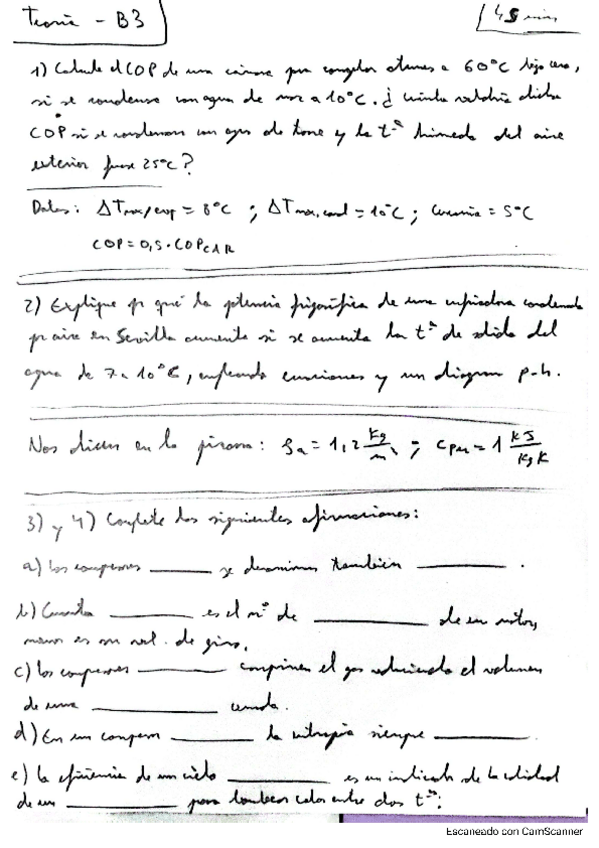 Teoría - B3
45 min
1) Calcule el COP de una cámara para congelar atunes a 60°C bajo cero,
si se condensa con agua de mar a 10°C. ¿Cuánto valdría dicho
COP si se condensara con agua de torre y la tª húmeda del aire
exterior fuese 25°C?
Datos: ΔTmax/evap = 8°C ; ΔTmax,cond = 10°C ; cercanía = 5°C
COP = 0,5 · COPCAR
2) Explique por qué la potencia frigorífica de una enfriadora condensada
por aire en Sevilla aumenta si se aumenta la tª de salida del
agua de 7 a 10°C, empleando ecuaciones y un diagrama p-h.
Nos dicen en la pizarra: ρa = 1,2 kg/m³ ; cpa = 1 kJ/kgK
3) y 4) Complete las siguientes afirmaciones:
a) Los compresores ______ se denominan también ______ .
b) Cuanto ______ es el nº de ______ de un motor,
menor es su vel. de giro.
c) los compresores ______ comprimen el gas reduciendo el volumen
de una ______ cerrada.
d) En un compresor ______ la entropía siempre ______ .
e) la eficiencia de un ciclo ______ es un indicador de la calidad
de un ______ para bombear calor entre dos tªs.
Escaneado con CamScanner